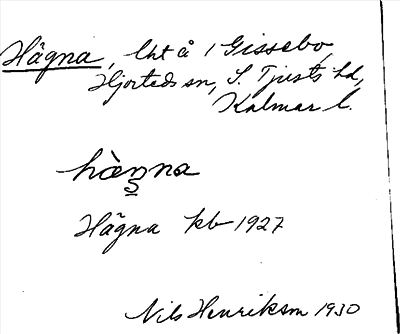 Hägna, lht å 1 Gissebo,
Hjorteds sn, S. Tjusts hd,
Kalmar l.
hàŋna
Hägna kb 1927
Nils Henrikson 1930